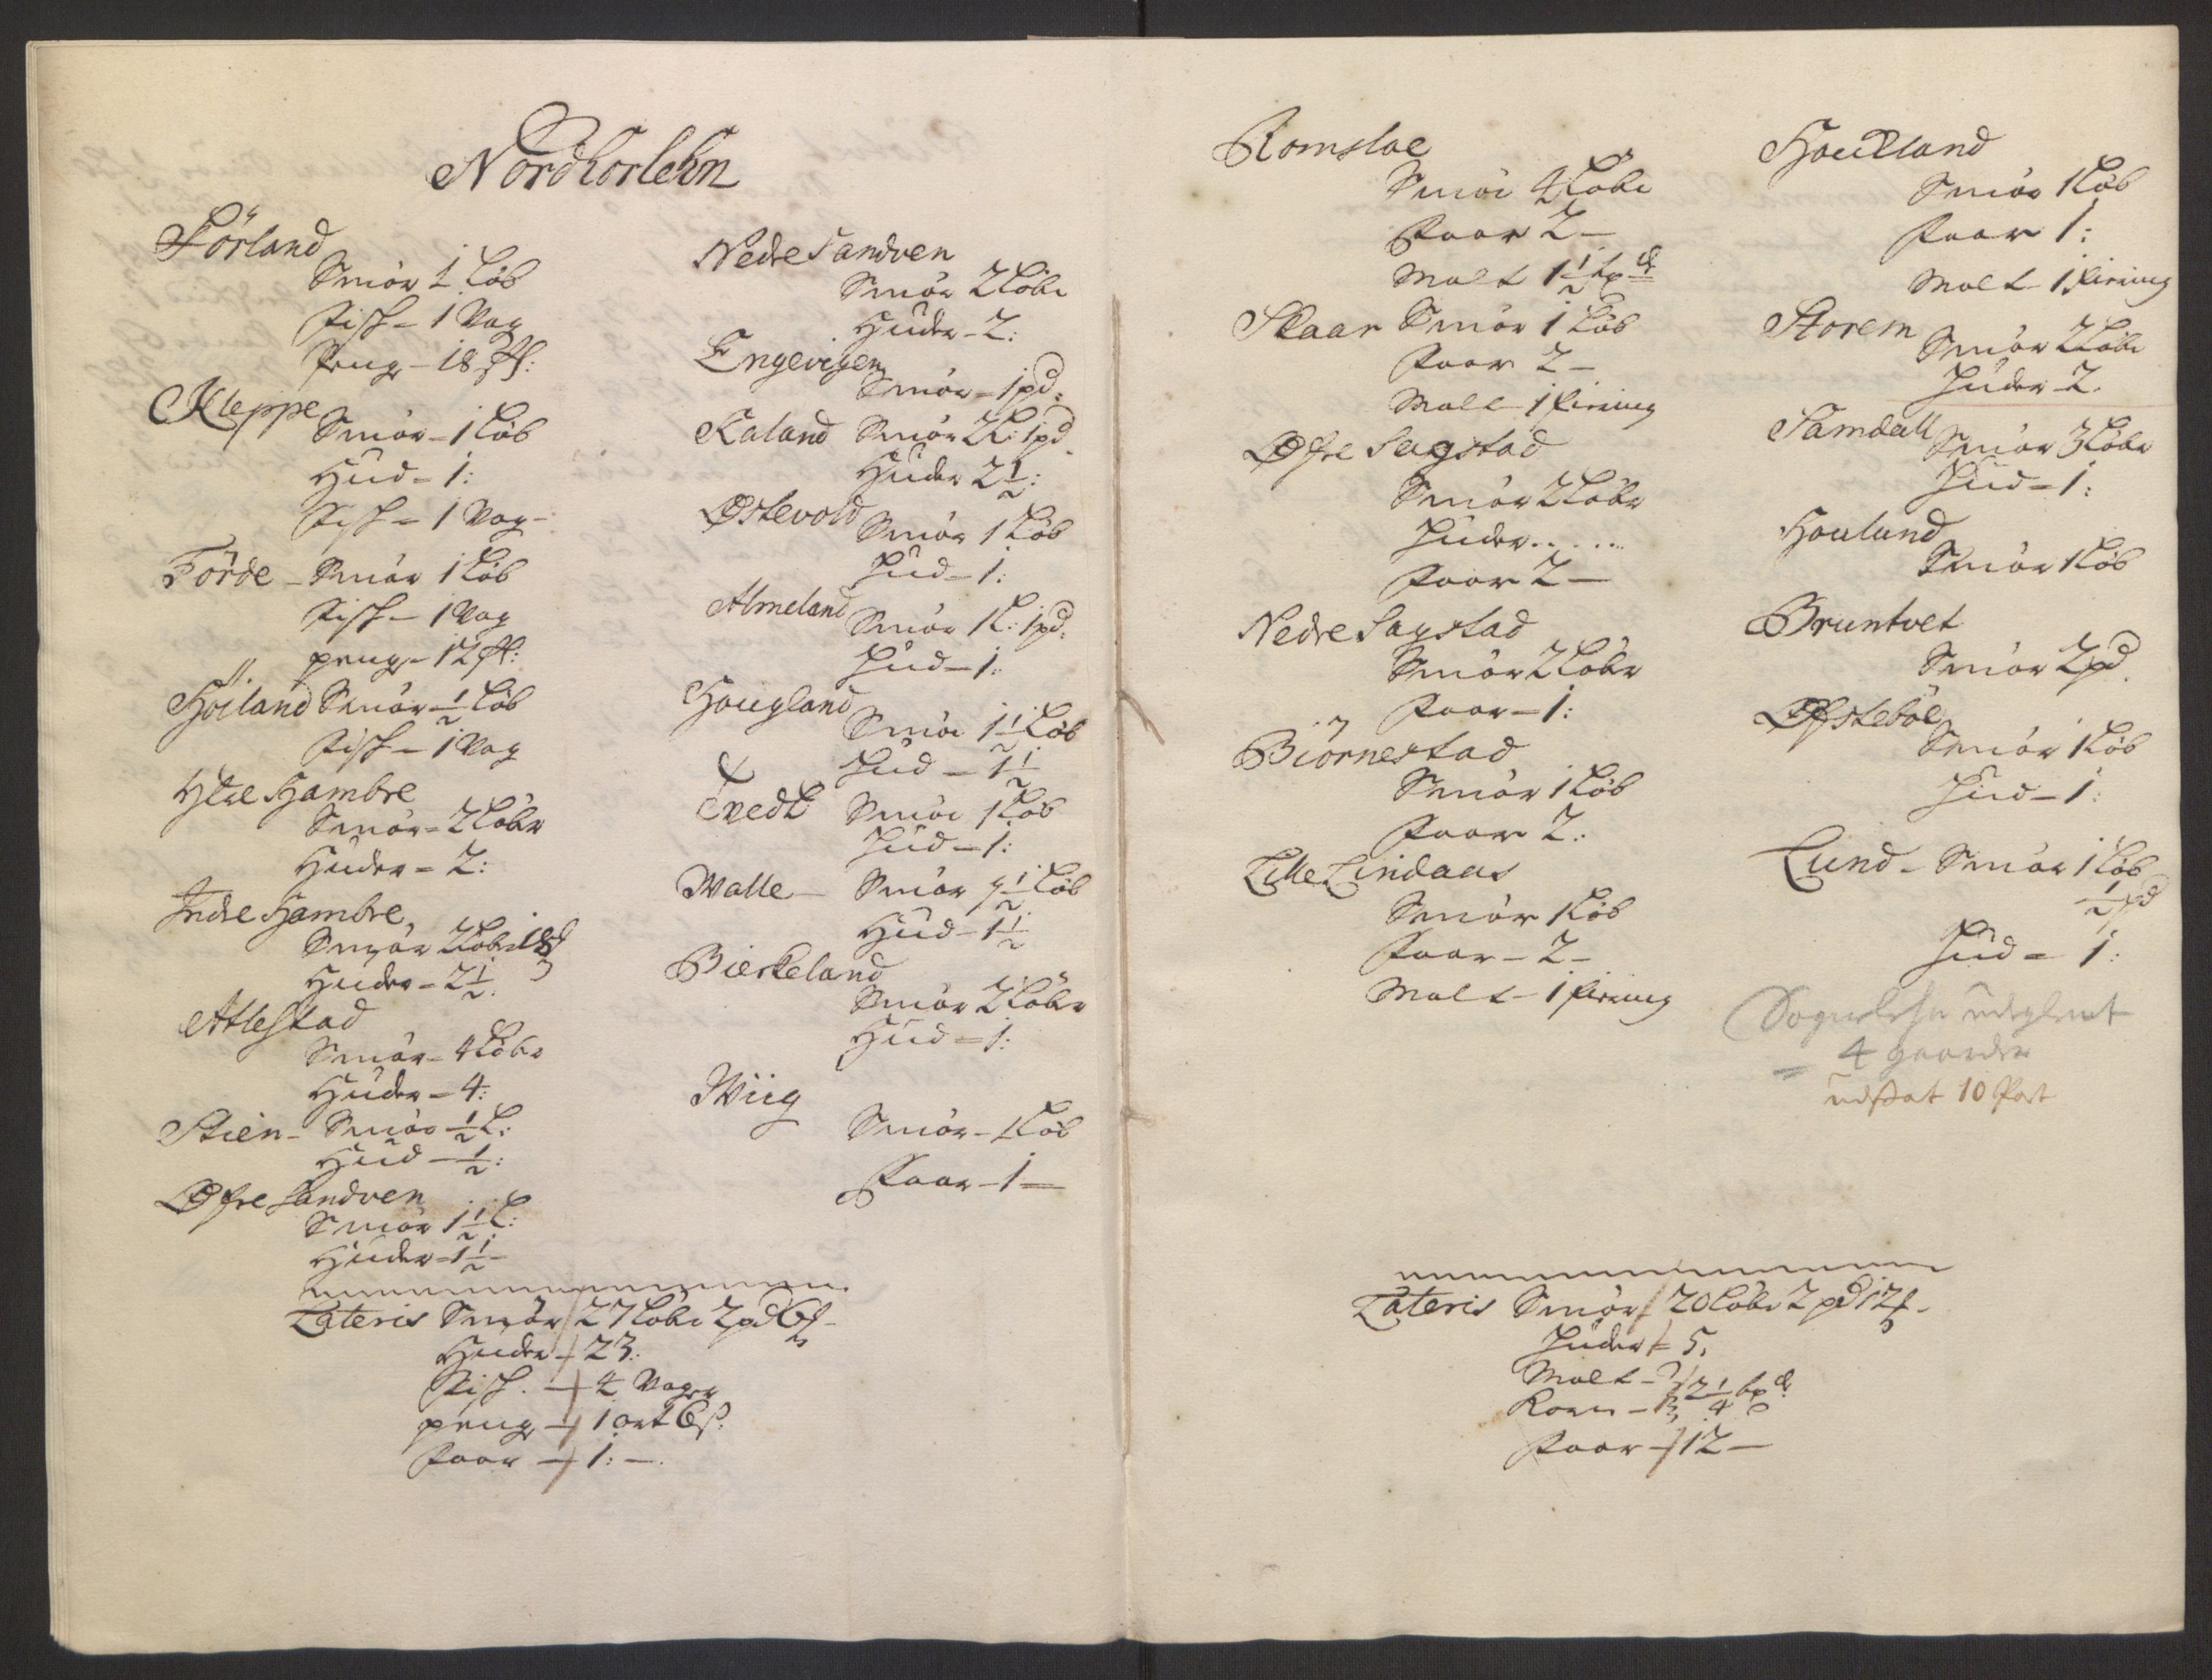 Nordhorlehn
Förland
Smör 1 Löb
Fisch - 1 Vog
Peng - 18 ß:
Kleppe
Smör - 1 Löb
Hud - 1:
Fisch - 1 Vog -
Förde - Smör 1 Löb
Fisch - 1 Vog
peng - 12 ß:
Höiland Smör - ½ Löb
Fisch - 1 Vog
Ytre Hambre
Smör - 2 Löber
Huder - 2:
Indre Hambre
Smör 2 Löber 18
Huder - 2½
Atlestad
Smör - 4 Löber
Huder - 4:
Stien - Smör ½ L:
Hud - ½:
Øfre Sandven
Smör 1½ L:
Huder - 1½ -
Nedre Sandven
Smör 2 Löbe
Huder - 2:
Engevigen
Smör - 1 pd:
Kaland Smör 2 L: 1 pd
Huder 2½:
Østevold
Smör 1 Löb
Hud - 1:
Almeland
Smör 1 L: 1 pd:
Hud - 1:
Hougland
Smör 1½ Löb
Hud - 1½
Tvedt Smör 1 Löb
Hud - 1:
Walle - Smör 1½ Löb
Hud - 1½
Bierkeland
Smör 2 Löber
Hud - 1:
Wiig
Smör - 1 Löb
Faar - 1 -
Lateris Smör 27 Löbe 2 pd 6
Huder - 23:
Fisch - 4 Voger
peng - 1 ort 6 ß:
Faar - 1: -
Romsloe
Smör 4 Löbe
Faar 2 -
Malt 1½
Skaar Smör 1 Löb
Faar 2 -
Malt 1 firing
Øfre Sagstad
Smör 2 Löber
Huder . . . . .
Faar 2 -
Nedre Sagstad
Smör 2 Löber
Faar - 1:
Biörnestad
Smör 1 Löb
Faar 2:
Lille Lindaas
Smör 1 Löb
Faar - 2 -
Malt - 1 firing
Houkland
Smör 1 Löb
Faar 1:
Malt - 1 firing
Storem
Smör 2 Löbe
Huder - 2.
Samdall
Smör 3 Löber
Hud - 1:
Houlund
Smör 1 Löb
Bruntvet
Smör 2 pd.
Øfsteböe
Smör 1 Löb
Hud - 1:
Lund - Smör 1 Löb
½ pd
Hud - 1:
4 gaarder
udsat 10 Port
Lateris Smör 20 Löbe 2 pd 12
Huder - 5.
Malt -
Korn - 2¼
Faar - 12 -